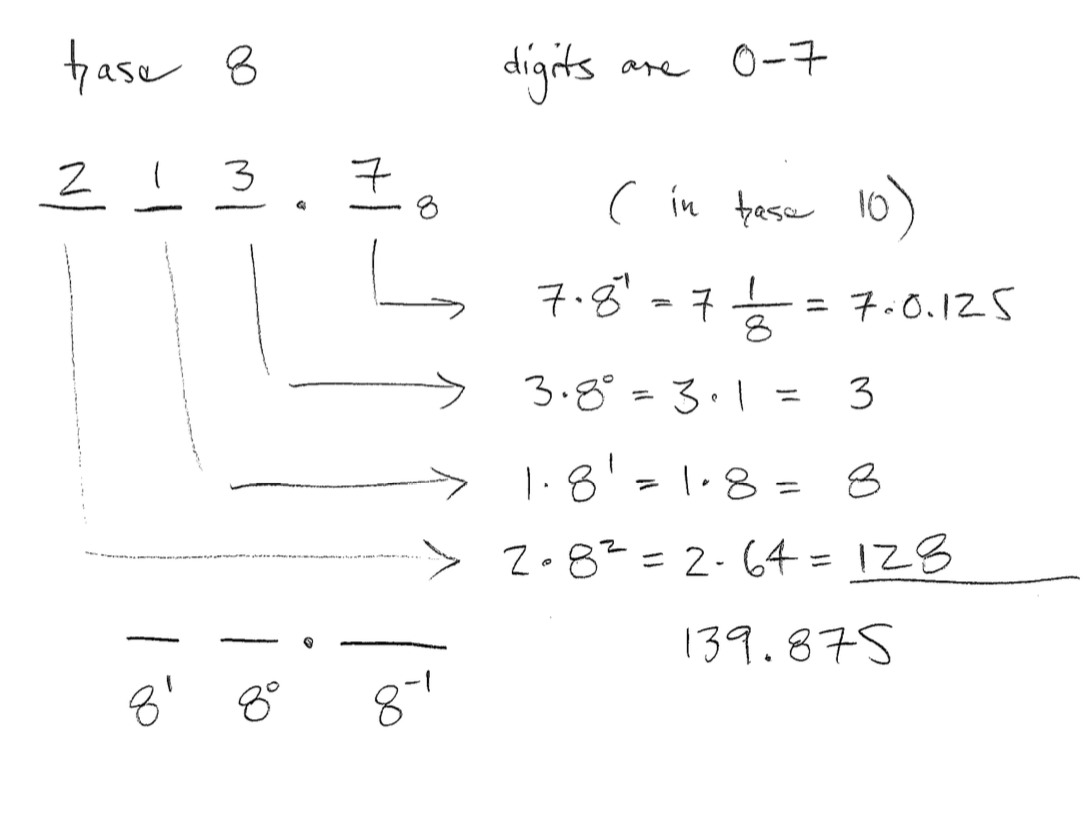 base 8 digits are 0-7
2 1 3 . 7 8
( in base 10)
7·8⁻¹ = 7 1/8 = 7·0.125
3·8⁰ = 3·1 = 3
1·8¹ = 1·8 = 8
2·8² = 2·64 = 128
139.875
8¹ 8⁰ 8⁻¹